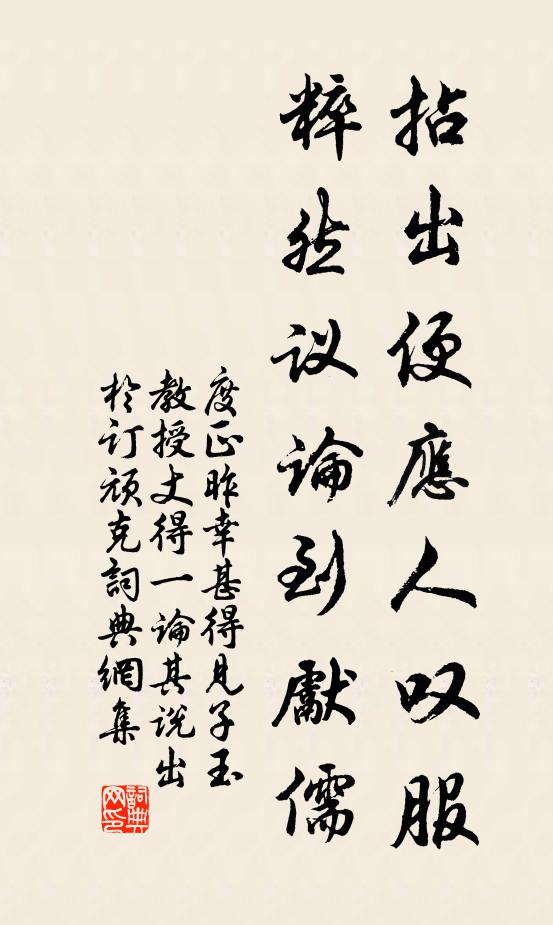 拈出便應人叹服
粹然议論到獻儒
度正昨幸甚得见子玉
教授丈得一論其说出
於订顽克詞典網集
詞典网印